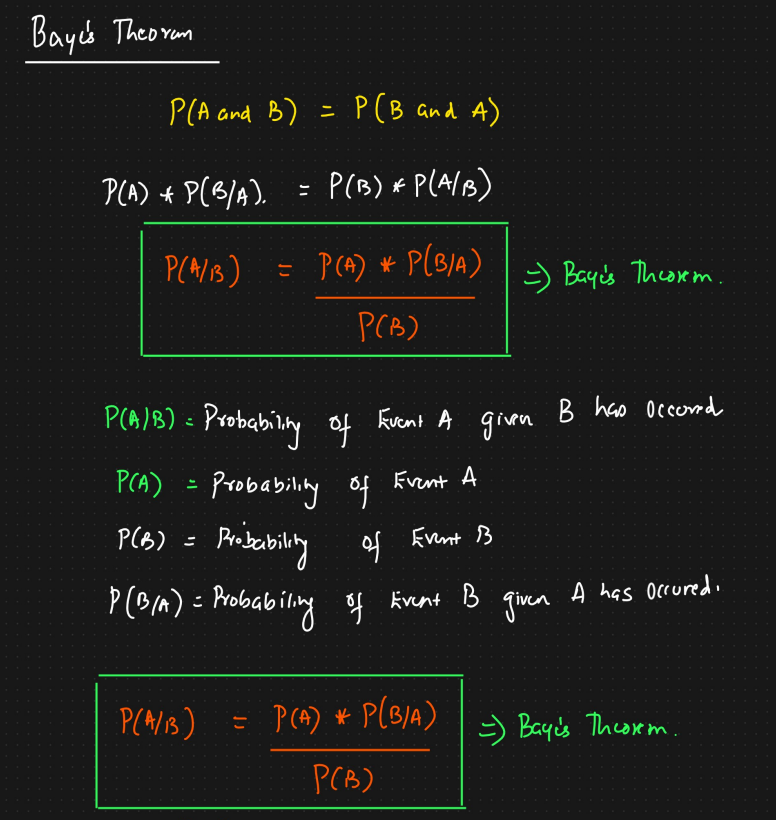 Baye's Theorem
P(A and B) = P(B and A)
P(A) * P(B/A). = P(B) * P(A/B)
P(A/B) = P(A) * P(B/A) => Baye's Theorem.
P(B)
P(A/B) = Probability of Event A given B has occured
P(A) = Probability of Event A
P(B) = Probability of Event B
P(B/A) = Probability of Event B given A has occured.
P(A/B) = P(A) * P(B/A) => Baye's Theorem.
P(B)